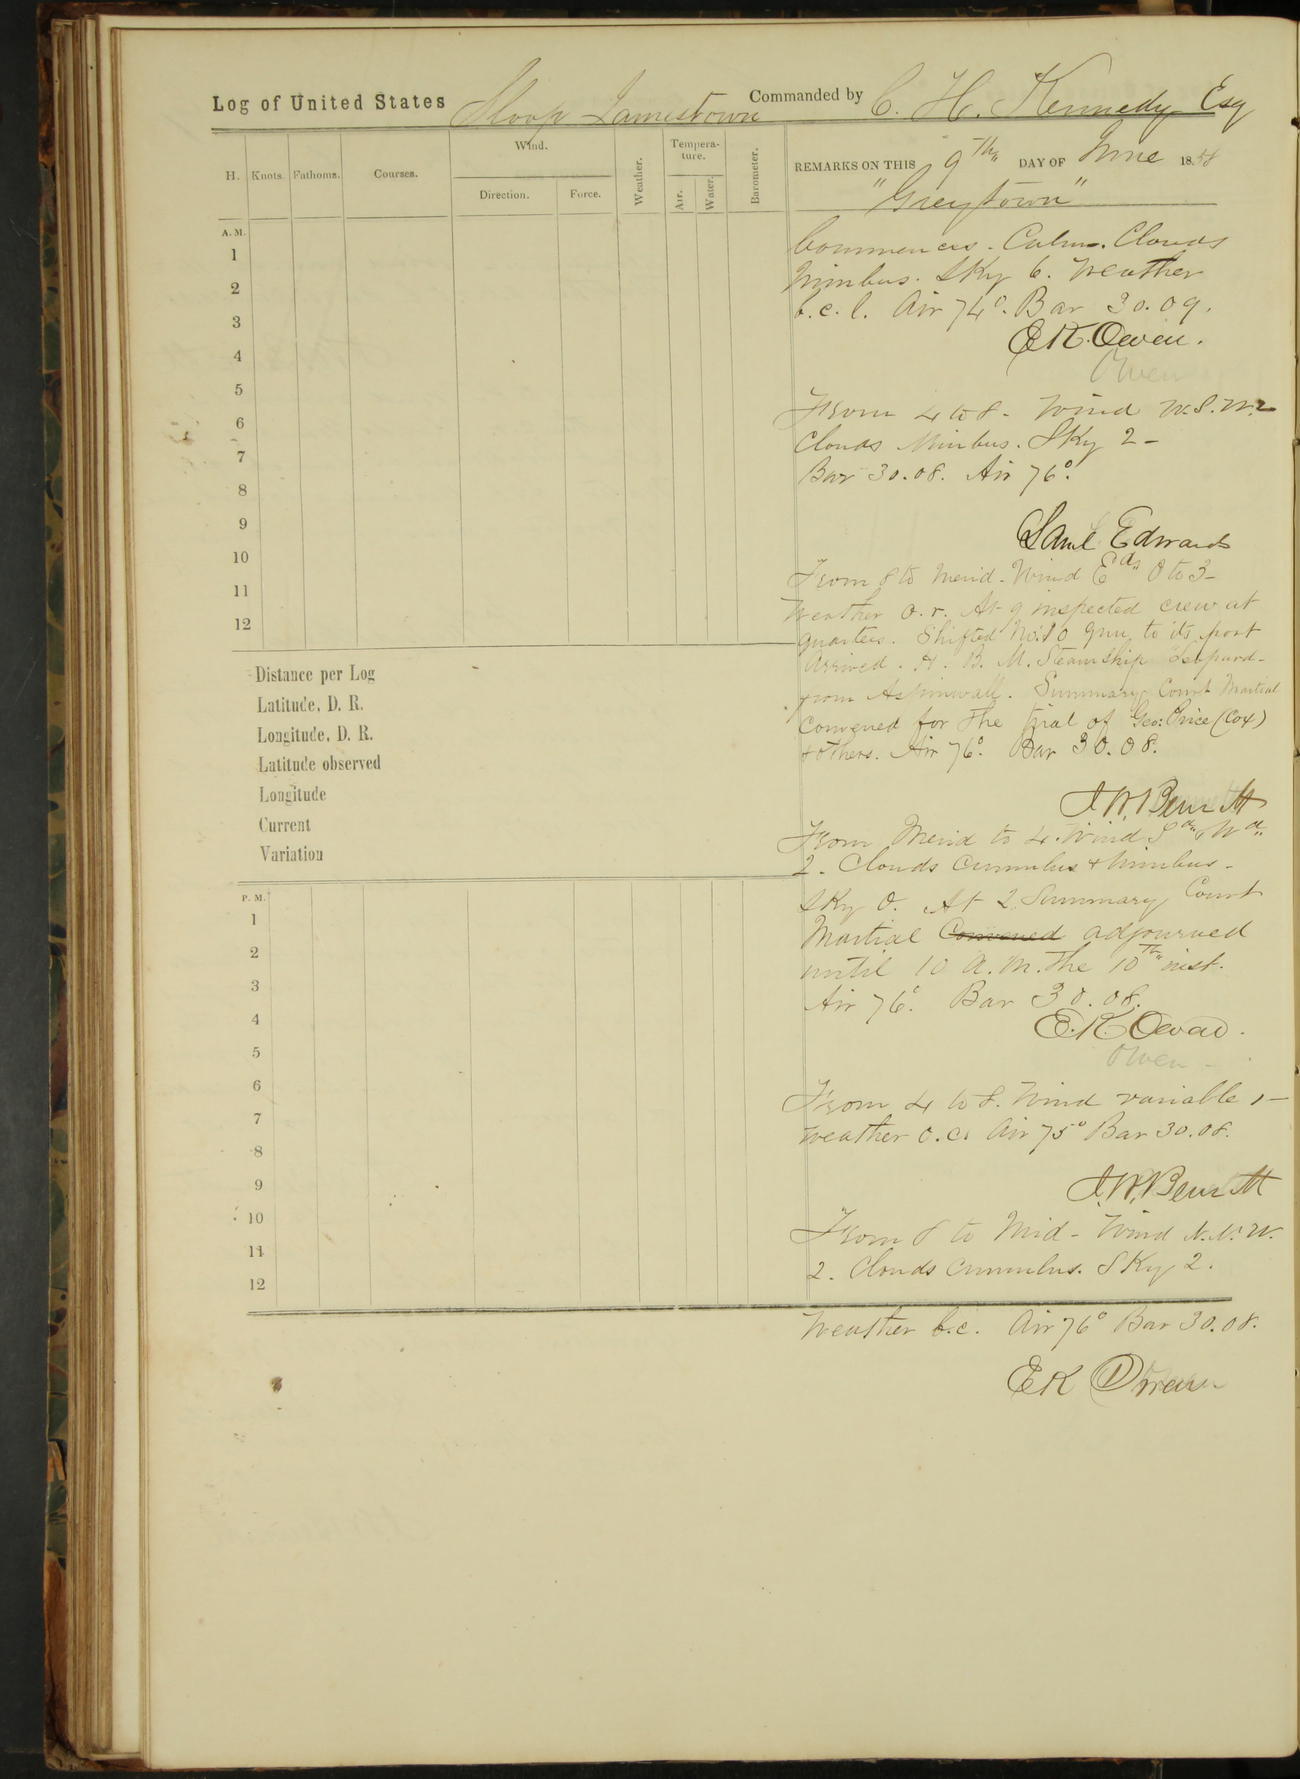 Log of United States Sloop Jamestown Commanded by C. H. Kennedy Esq
H. Knots. Fathoms. Courses. Wind. Direction. Force. Weather. Tempera-ture. Air. Water. Barometer.
REMARKS ON THIS 9th DAY OF June 1858
"Greytown"
A. M.
1
2
3
4
5
6
7
8
9
10
11
12
Commences. Calm. Clouds
Nimbus. Sky 6. Weather
b.c.l. Air 74°. Bar 30.09.
E K. Owen.
Owen
From 4 to 8. Wind W.S.W. 2
Clouds Nimbus. Sky 2 -
Bar 30.08. Air 76°.
Saml Edwards
From 8 to Merid. Wind Ed. 0 to 3 -
Weather o.r. At 9 inspected crew at
quarters. Shifted No. 10 gun, to its port
Arrived. H. B. M. Steamship "Leopard -
from Aspinwall. Summary Court Martial
Convened for the trial of Geo: Price (Cox)
& others. Air 76°. Bar 30.08.
J. W. Bennett
Distance per Log
Latitude, D. R.
Longitude, D. R.
Latitude observed
Longitude
Current
Variation
From Merid to 4. Wind Sd & Wd.
2. Clouds Cummulus & Nimbus -
Sky 0. At 2. Summary Court
Martial Convened adjourned
until 10 A.M. the 10th inst.
Air 76°. Bar 30.08.
E. K. Owen.
Owen -
P. M.
1
2
3
4
5
6
7
8
9
10
11
12
From 4 to 8. Wind variable 1 -
Weather o.c. Air 75° Bar 30.08.
J. W. Bennett
From 8 to Mid - Wind N.N.W.
2. Clouds Cummulus. Sky 2.
Weather b.c. Air 76° Bar 30.08.
E K Owen